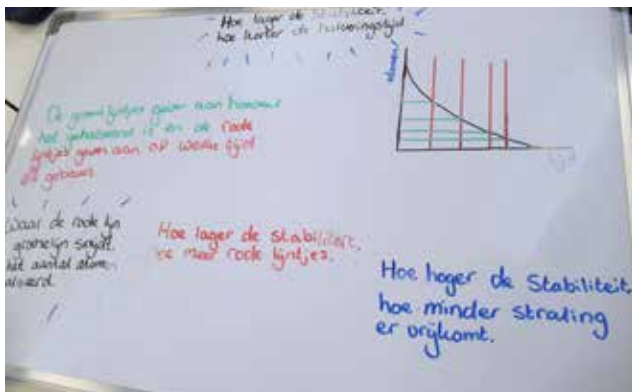 Hoe lager de stabiliteit,
hoe korter de halveringstijd
atomen
tijd
De groene lijntjes geven aan hoeveel
het gehalveerd is en de rode
lijntjes geven aan op welke tijd
dit gebeurt.
Waar de rode lijn
groene lijn snijdt
het aantal atomen
Hoe lager de stabiliteit,
hoe meer rode lijntjes.
Hoe hoger de Stabiliteit,
hoe minder straling
er vrijkomt.